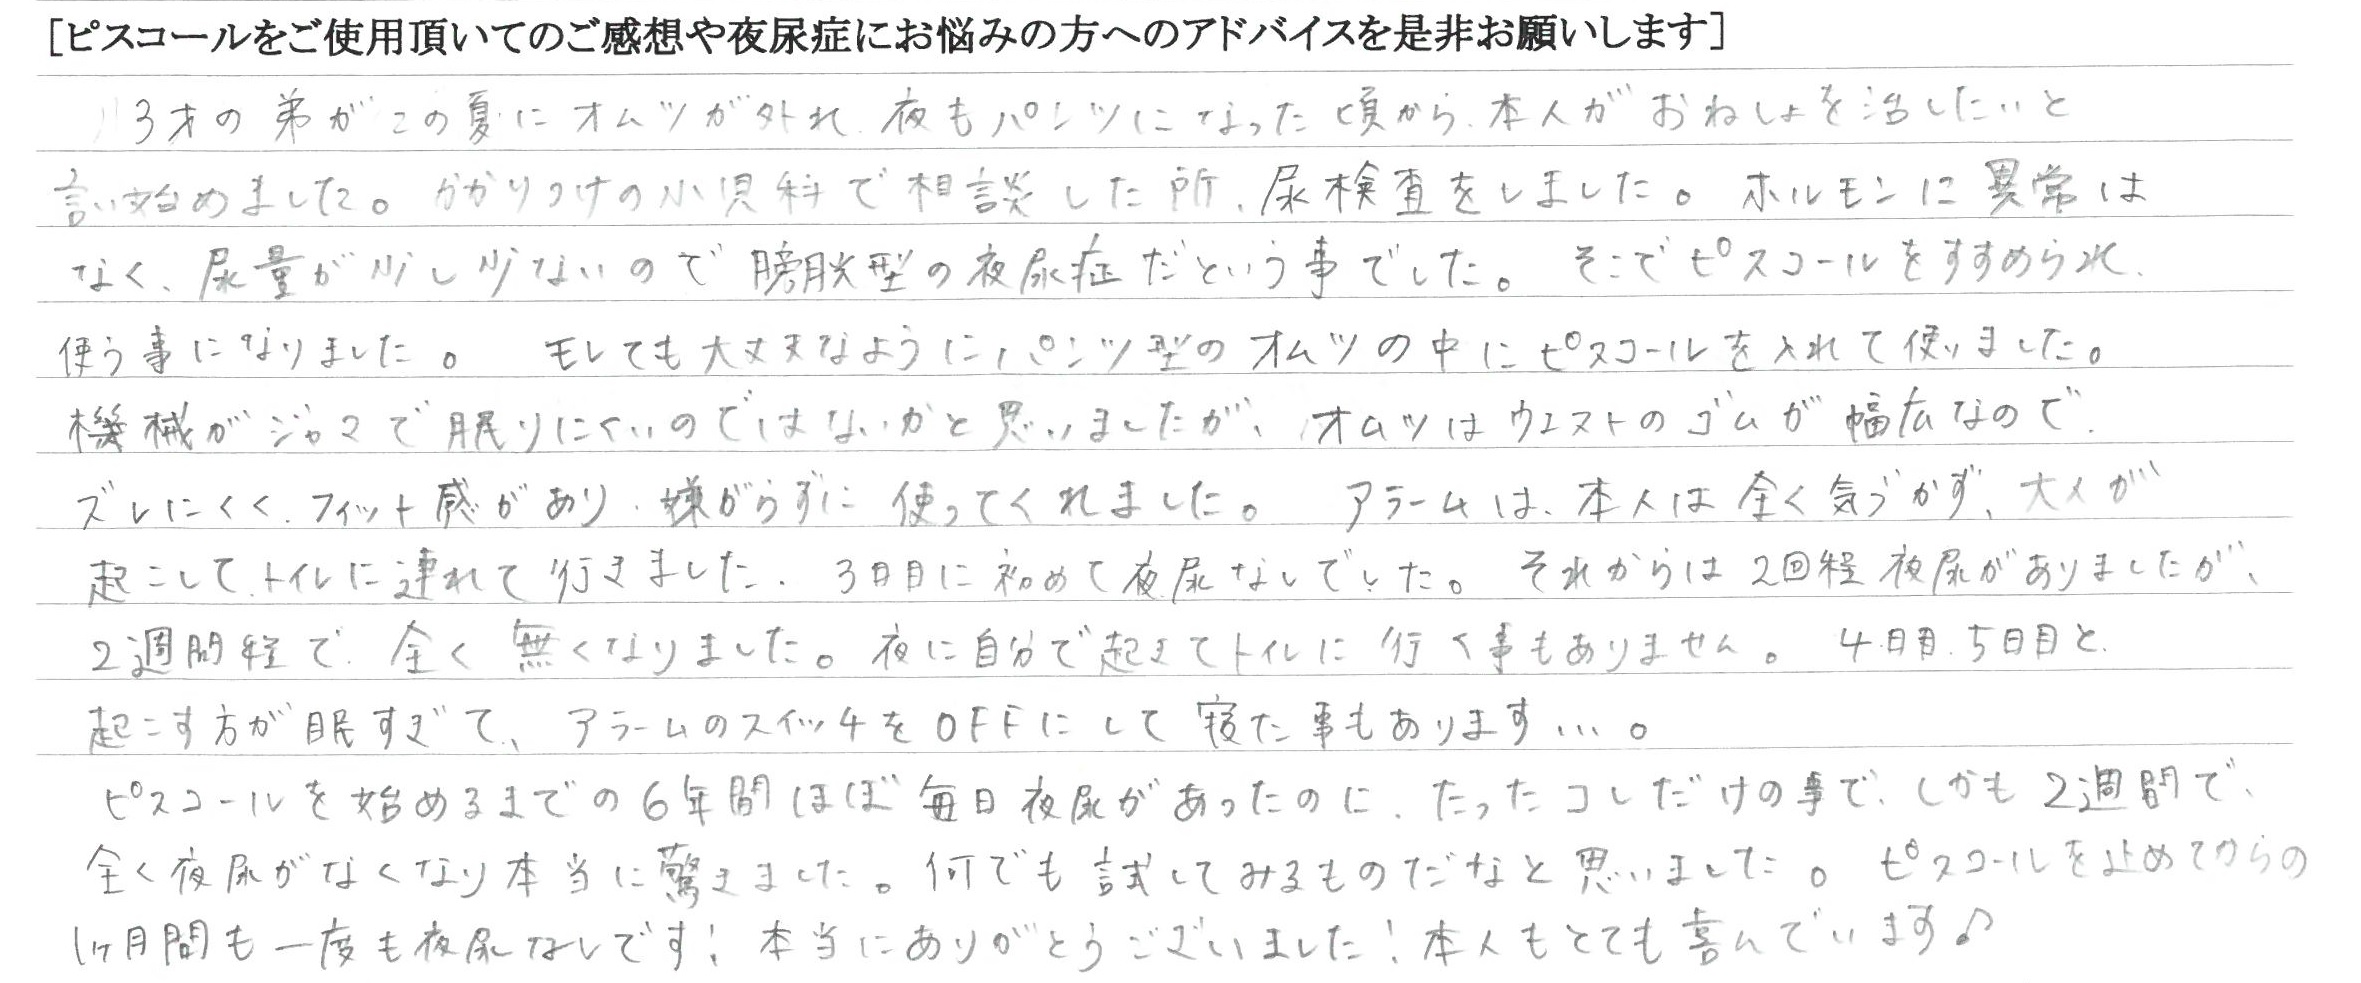 [ピスコールをご使用頂いてのご感想や夜尿症にお悩みの方へのアドバイスを是非お願いします]
3才の弟がこの夏にオムツが外れ、夜もパンツになった頃から、本人がおねしょを治したいと
言い始めました。かかりつけの小児科で相談した所、尿検査をしました。ホルモンに異常は
なく、尿量が少し少ないので膀胱型の夜尿症だという事でした。そこでピスコールをすすめられ、
使う事になりました。 モレても大丈夫なようにパンツ型のオムツの中にピスコールを入れて使いました。
機械がジャマで眠りにくいのではないかと思いましたが、オムツはウエストのゴムが幅広なので、
ズレにくく、フィット感があり、嫌がらずに使ってくれました。 アラームは、本人は全く気づかず、大人が
起こして、トイレに連れて行きました。3日目に初めて夜尿なしでした。それからは2回程夜尿がありましたが、
2週間程で、全く無くなりました。夜に自分で起きてトイレに行く事もありません。 4日目、5日目と、
起こす方が眠すぎて、アラームのスイッチをOFFにして寝た事もあります…。
ピスコールを始めるまでの6年間ほぼ毎日夜尿があったのに、たったコレだけの事で、しかも2週間で、
全く夜尿がなくなり本当に驚きました。何でも試してみるものだなと思いました。ピスコールを止めてからの
1ヶ月間も一度も夜尿なしです!本当にありがとうございました!本人もとても喜んでいます♪